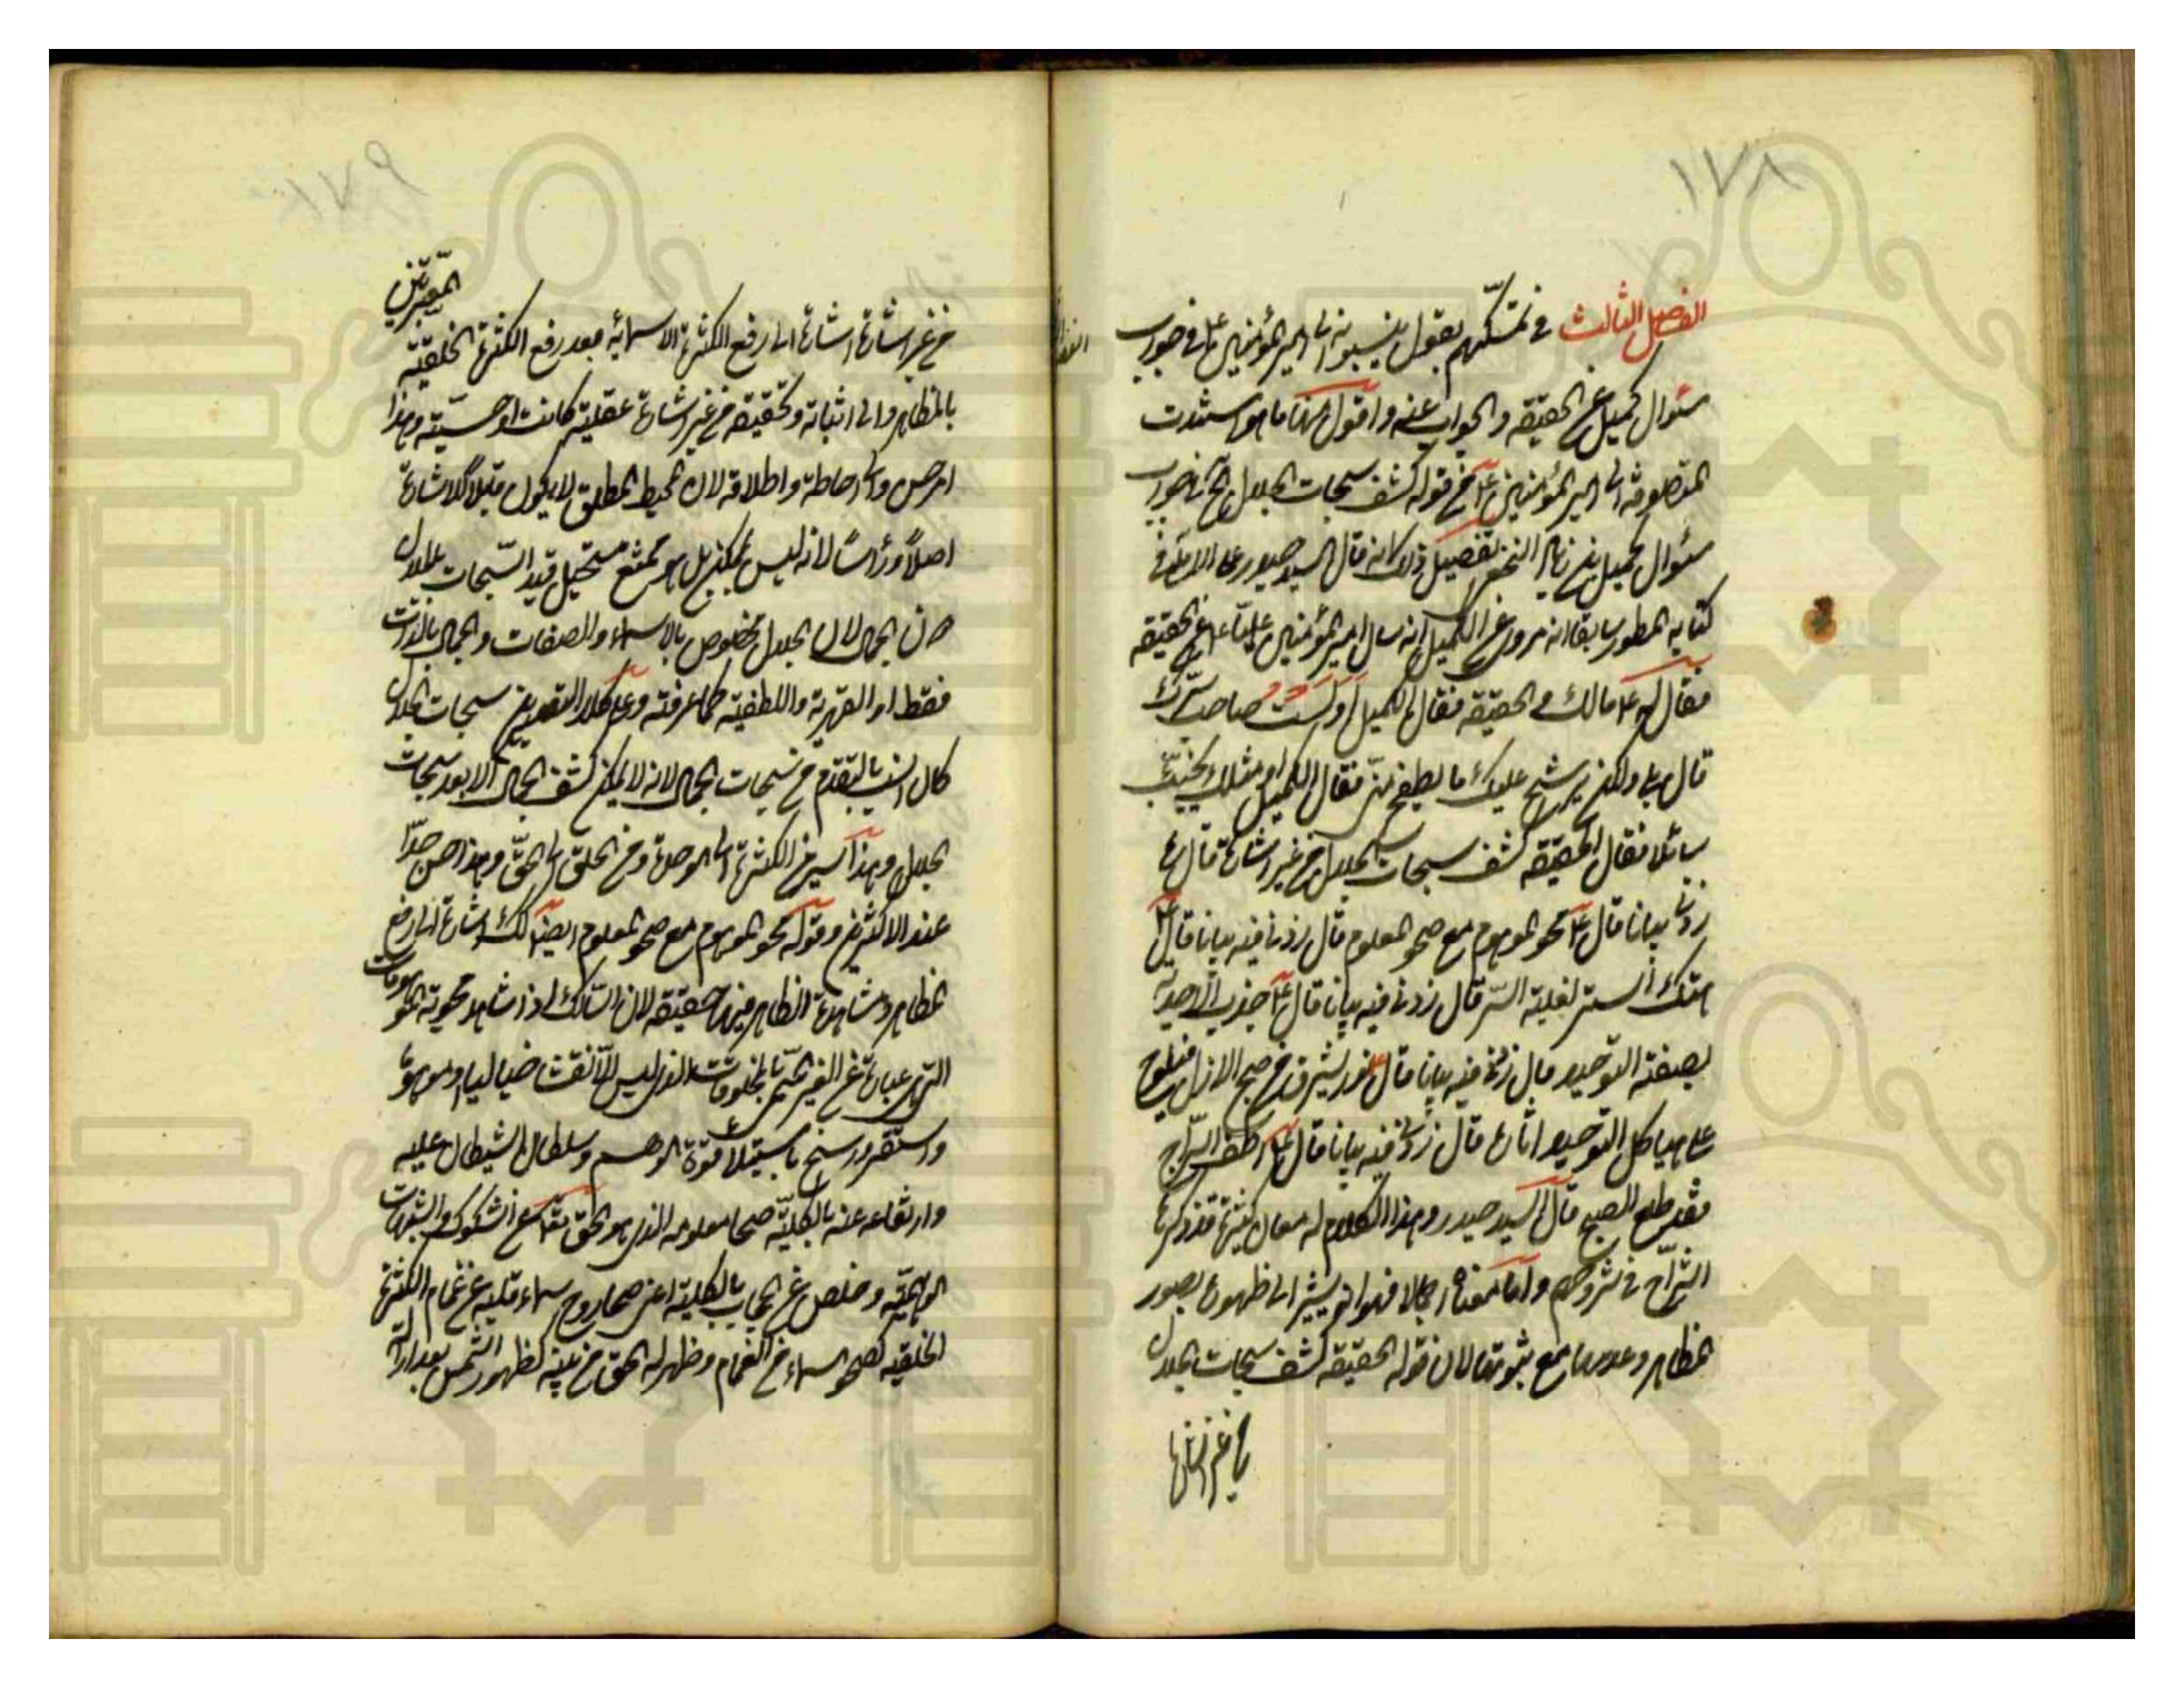 ١٧٨
الفصل الثالث في تمسكهم بقول ينسبونه الى امير المؤمنين ع في جواب
سئوال كميل عن الحقيقة والجواب عنه واقول منها ما استندت
المتصوفة الى امير المؤمنين ع من قوله كشف سبحات الجلال الخ في جواب
سئوال كميل بن زياد النخعي تفصيل ذلك انه قال السيد حيدر على الاملي في
كتابه المسطور سابقا انه مروي عن الكميل انه سال امير المؤمنين عليا ع عن الحقيقة
فقال له ع مالك والحقيقة فقال الكميل اولست صاحب سرك
قال بلى ولكن يرشح عليك ما يطفح مني فقال الكميل او مثلك يخيب
سائلا فقال الحقيقة كشف سبحات الجلال من غير اشارة قال
زدني بيانا قال ع محو الموهوم مع صحو المعلوم قال زدني فيه بيانا قال ع
هتك الستر لغلبة السر قال زدني فيه بيانا قال ع جذب الاحدية
لصفة التوحيد قال زدني فيه بيانا قال ع نور يشرق من صبح الازل فيلوح
على هياكل التوحيد اثاره قال زدني فيه بيانا قال ع اطف السراج
فقد طلع الصبح قال السيد حيدر وهذا الكلام له معان كثيرة قد ذكرها
الشراح في شروحهم واما معناه اجمالا فهو انه يشير الى ظهوره بصور
المظاهر وعدمها مع ثبوتها لان قوله الحقيقة كشف سبحات الجلال
من غير اشارة
المعتبرتين
من غير اشارة اشارة الى رفع الكثرة الاسمائية بعد رفع الكثرة الخلقية
بالمظاهر والى اثباته وتحقيقه من غير اشارة عقلية كانت او حسية وهذا
احاطته واطلاقه لان المحيط المطلق لا يكون قابلا للاشارة
اصلا ورأسا لانه ليس بممكن بل هو ممتنع مستحيل قيد السبحات بالجلال
دون الجمال لان الجلال مخصوص بالاسماء والصفات والجمال بالذات
فقط او القهرية واللطفية كما عرفته وعلى كلا التقديرين سبحات الجلال
كان انسب بالتقدم من سبحات الجمال لانه لا يمكن كشف الجمال الا بعد سبحات
الجلال وهذا سير من الكثرة الى الوحدة ومن الخلق الى الحق وهذا حسن جدا
عند الاكثرين وقوله محو الموهوم مع صحو المعلوم ايضا كذلك اشارة الى رفع
المظاهر ومشاهدة الظاهر فيها حقيقة لان السالك اذا شاهد محوية الموهومات
التي هي عبارة عن الغير المسمى بالمخلوقات الذي ليس الا نقشا خياليا وموهوما
واستقر ورسخ باستيلاء قوة الوهم وسلطان الشيطان عليه
وارتفاعه عنه بالكلية صحا معلومه الذي هو الحق تعالى عن الشكوك والشبهات
الوهمية وخلص عن الحجاب بالكلية اعني صحا روح سماء قلبه عن غمام الكثرة
الخلقية كصحو السماء من الغمام وظهر له الحق من بينه كظهور الشمس بعد ازالة